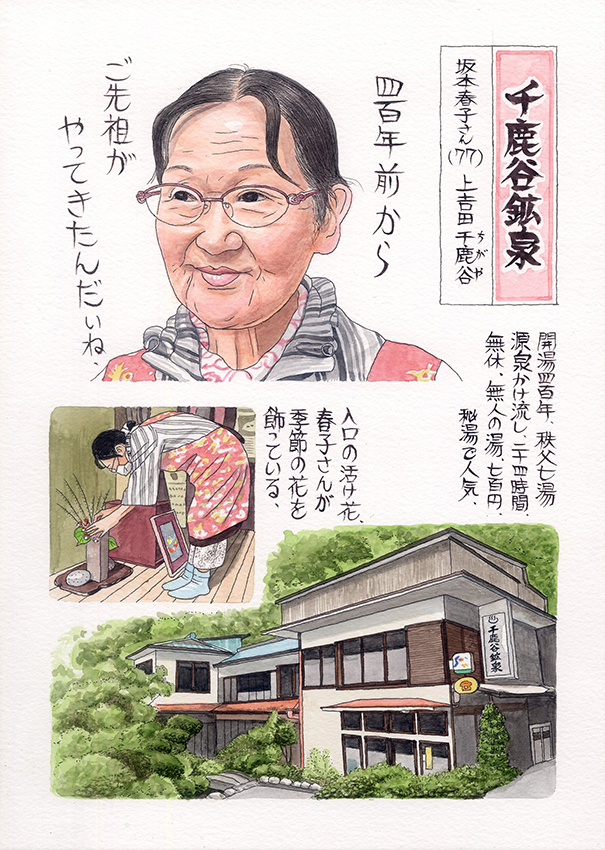 千鹿谷鉱泉
坂本春子さん(77) 上吉田 千鹿谷
ちがや
四百年前から
ご先祖が
やってきたんだいね、
開湯四百年、秩父七湯
源泉かけ流し、二十四時間、
無休、無人の湯、七百円、
秘湯で人気、
入口の活け花、
春子さんが
季節の花を
飾っている、
千鹿谷鉱泉